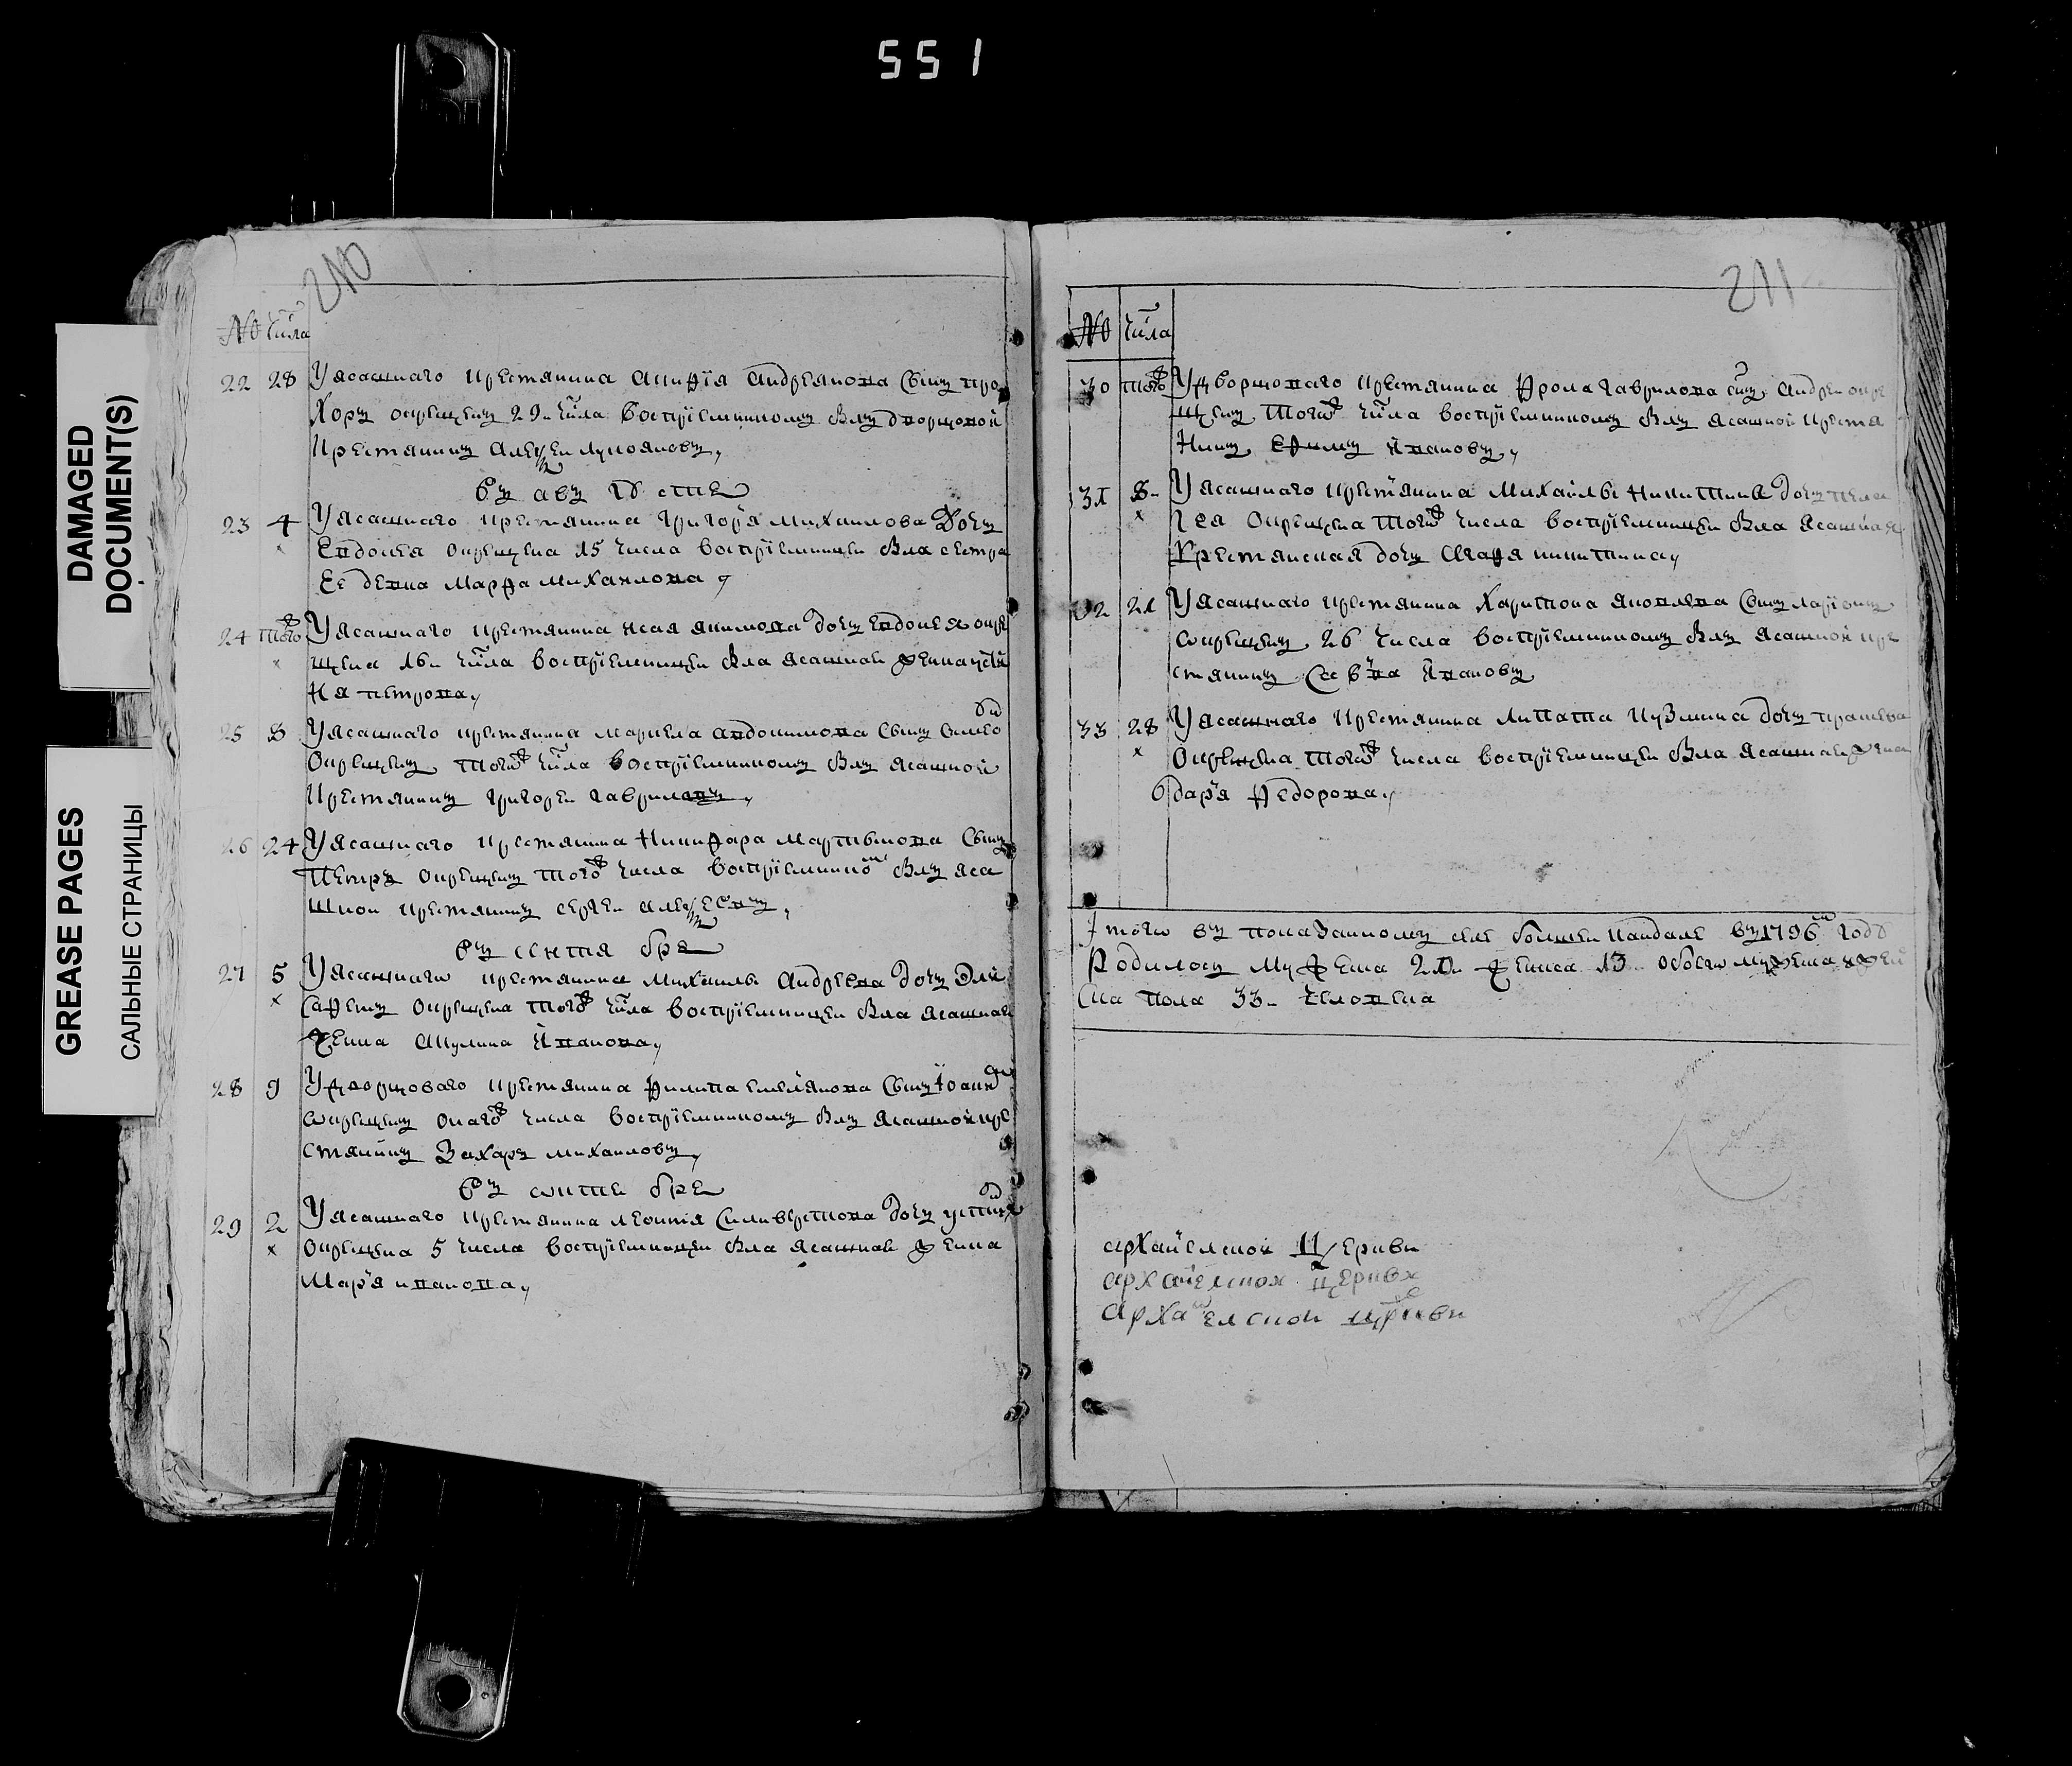 551
DAMAGED
DOCUMENT(S)
GREASE PAGES
САЛЬНЫЕ СТРАНИЦЫ
210
№ числа
22 28 У ясашнаго крестянина Андреянова сынъ про
хоръ окрещенъ 29 числа воспрiемникомъ былъ дворцовой
крестянинъ Алексеи Лукояновъ
въ августе
23 4 У ясашнаго крестянина Григорья Михаилова дочь
Евдокея окрещена 15 числа воспрiемницеи была сестра
ее девка Марфа Михаилова
24 того ж У ясашнаго крестянина Исая Акимова дочь Евдокея окре
щена 16 числа воспрiемницеи была ясашная женка
петрова
25 8 У ясашнаго крестянина Маркела Авдокимова сынъ
окрещенъ того ж числа воспрiемникомъ былъ ясашной
крестянинъ Григореи Гавриловъ
26 24 У ясашнаго крестянина Никифара Мартынова сынъ
Петръ окрещенъ того ж числа воспрiемником былъ яса
шнои крестянинъ Сергеи Алексеевъ
въ сентя бре
27 5 У ясашнаго крестянина Михаилы Андреева дочь Эли
сафетъ окрещена того ж числа воспрiемницеи была ясашная
женка Акулина Иванова
28 9 У дворцоваго крестянина Филипа Емельянова сынъ Иоанн
окрещенъ онаго ж числа воспрiемникомъ былъ ясашной кре
стянинъ Захаръ Михаиловъ
въ октебре
29 2 У ясашнаго крестянина Леонтя Силиверстова дочь
окрещена 5 числа воспрiемницеи была ясашная женка
Марья Иванова
211
№ числа
30 того ж У дворцоваго крестянина Фрола Гаврилова сынъ Андреи окре
щенъ того ж числа воспрiемникомъ былъ ясашной крестя
нинъ Ефимъ Ивановъ
31 8 У ясашнаго крестянина Михаилы Никитина дочь Пела
гея окрещена того ж числа воспрiемницеи была ясашная
крестянская дочь Никитина
32 21 У ясашнаго крестянина Харитона Яковлева сынъ Ларионъ
окрещенъ 26 числа воспрiемникомъ былъ ясашной кре
стянинъ Савва Ивановъ
33 28 У ясашнаго крестянина Липата Кузмина дочь
окрещена того ж числа воспрiемницеи была ясашная женка
Дарья Федорова
Итого въ показанномъ селе болшеи Кандале въ 1796м годе
родилось мужеска 20 женска 13 обоего мужеска и жен
ска пола 33 человека
архаиелскои церкви
архаиелскои церкви
архаиелскои церкви